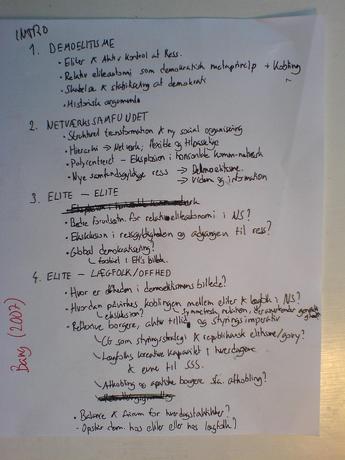 INTRO
1. DEMOELITISME
• Eliter & Aktiv kontrol af Ress.
• Relativ eliteautonomi som demokratisk metaprincip + Kobling
• Skabelse & stabilisering af demokrati
• Historisk argument
2. NETVÆRKSSAMFUNDET
• Strukturel transformation & ny social organisering
• Hierarki → Netværk; fleksible og tilpasselige
• Polycentrert – Eksplosion i horisontale komm.netværk
• Nye samfundsgyldige ress → Demoelitisme
→ Viden og information
3. ELITE – ELITE
• Bedre forudsætn. for relativ eliteautonomi i NS?
• Eksklusion i ressourcerigheden og adgangen til ress?
• Global demokratisering?
4. ELITE – LÆGFOLK/OFFHED
• Hvor er offheden i demoelitismens billede?
• Hvordan påvirkes koblingen mellem eliter & lægfolk i NS?
eksklusion?
• Refleksive borgere, aktiv tillid, og styringsimperativ
CG som styringsstrategi & republikansk elitisme/gov?
Lægfolks kreative kapacitet i hverdagene
& evne til SSS.
Afkobling og apatiske borgere
afkobling?
• Balance & forum for hverdagsaktiviteter?
• Opstår dem. hos eliter eller hos lægfolk?
Bang (2007)